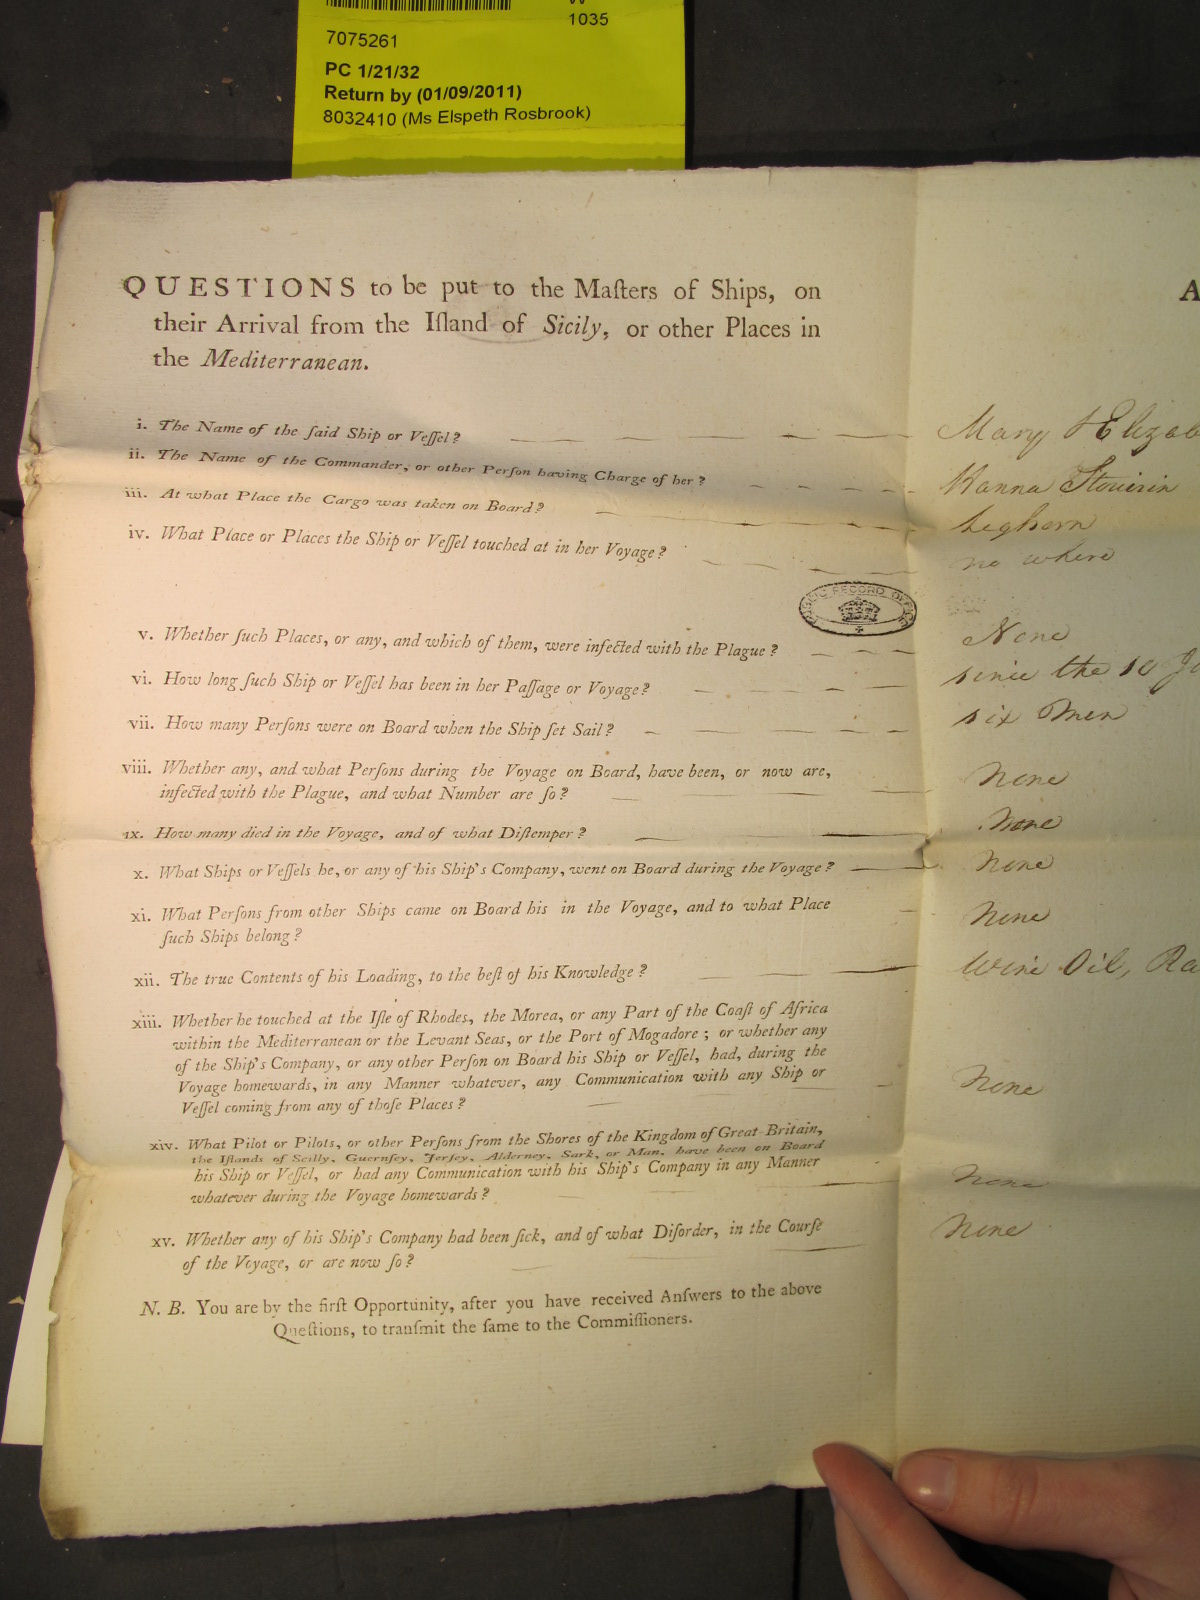 1035
7075261
PC 1/21/32
Return by (01/09/2011)
8032410 (Ms Elspeth Rosbrook)
QUESTIONS to be put to the Maſters of Ships, on
their Arrival from the Iſland of Sicily, or other Places in
the Mediterranean.
A
i. The Name of the ſaid Ship or Veſſel? Mary & Elizab
ii. The Name of the Commander, or other Perſon having Charge of her?
iii. At what Place the Cargo was taken on Board? Leghorn
iv. What Place or Places the Ship or Veſſel touched at in her Voyage? no where
PUBLIC RECORD OFFICE
v. Whether ſuch Places, or any, and which of them, were infected with the Plague? None
vi. How long ſuch Ship or Veſſel has been in her Paſſage or Voyage? since the 10
vii. How many Perſons were on Board when the Ship ſet Sail? six Men
viii. Whether any, and what Perſons during the Voyage on Board, have been, or now are,
infected with the Plague, and what Number are ſo? None
ix. How many died in the Voyage, and of what Diſtemper? None
x. What Ships or Veſſels he, or any of his Ship's Company, went on Board during the Voyage? None
xi. What Perſons from other Ships came on Board his in the Voyage, and to what Place
ſuch Ships belong? None
xii. The true Contents of his Loading, to the beſt of his Knowledge? Wine Oil, Ra
xiii. Whether he touched at the Iſle of Rhodes, the Morea, or any Part of the Coaſt of Africa
within the Mediterranean or the Levant Seas, or the Port of Mogadore; or whether any
of the Ship's Company, or any other Perſon on Board his Ship or Veſſel, had, during the
Voyage homewards, in any Manner whatever, any Communication with any Ship or
Veſſel coming from any of thoſe Places? None
xiv. What Pilot or Pilots, or other Perſons from the Shores of the Kingdom of Great-Britain,
the Iſlands of Scilly, Guernſey, Jerſey, Alderney, Sark, or Man, have been on Board
his Ship or Veſſel, or had any Communication with his Ship's Company in any Manner
whatever during the Voyage homewards? None
xv. Whether any of his Ship's Company had been ſick, and of what Diſorder, in the Courſe
of the Voyage, or are now ſo? None
N. B. You are by the firſt Opportunity, after you have received Anſwers to the above
Queſtions, to tranſmit the ſame to the Commiſſioners.